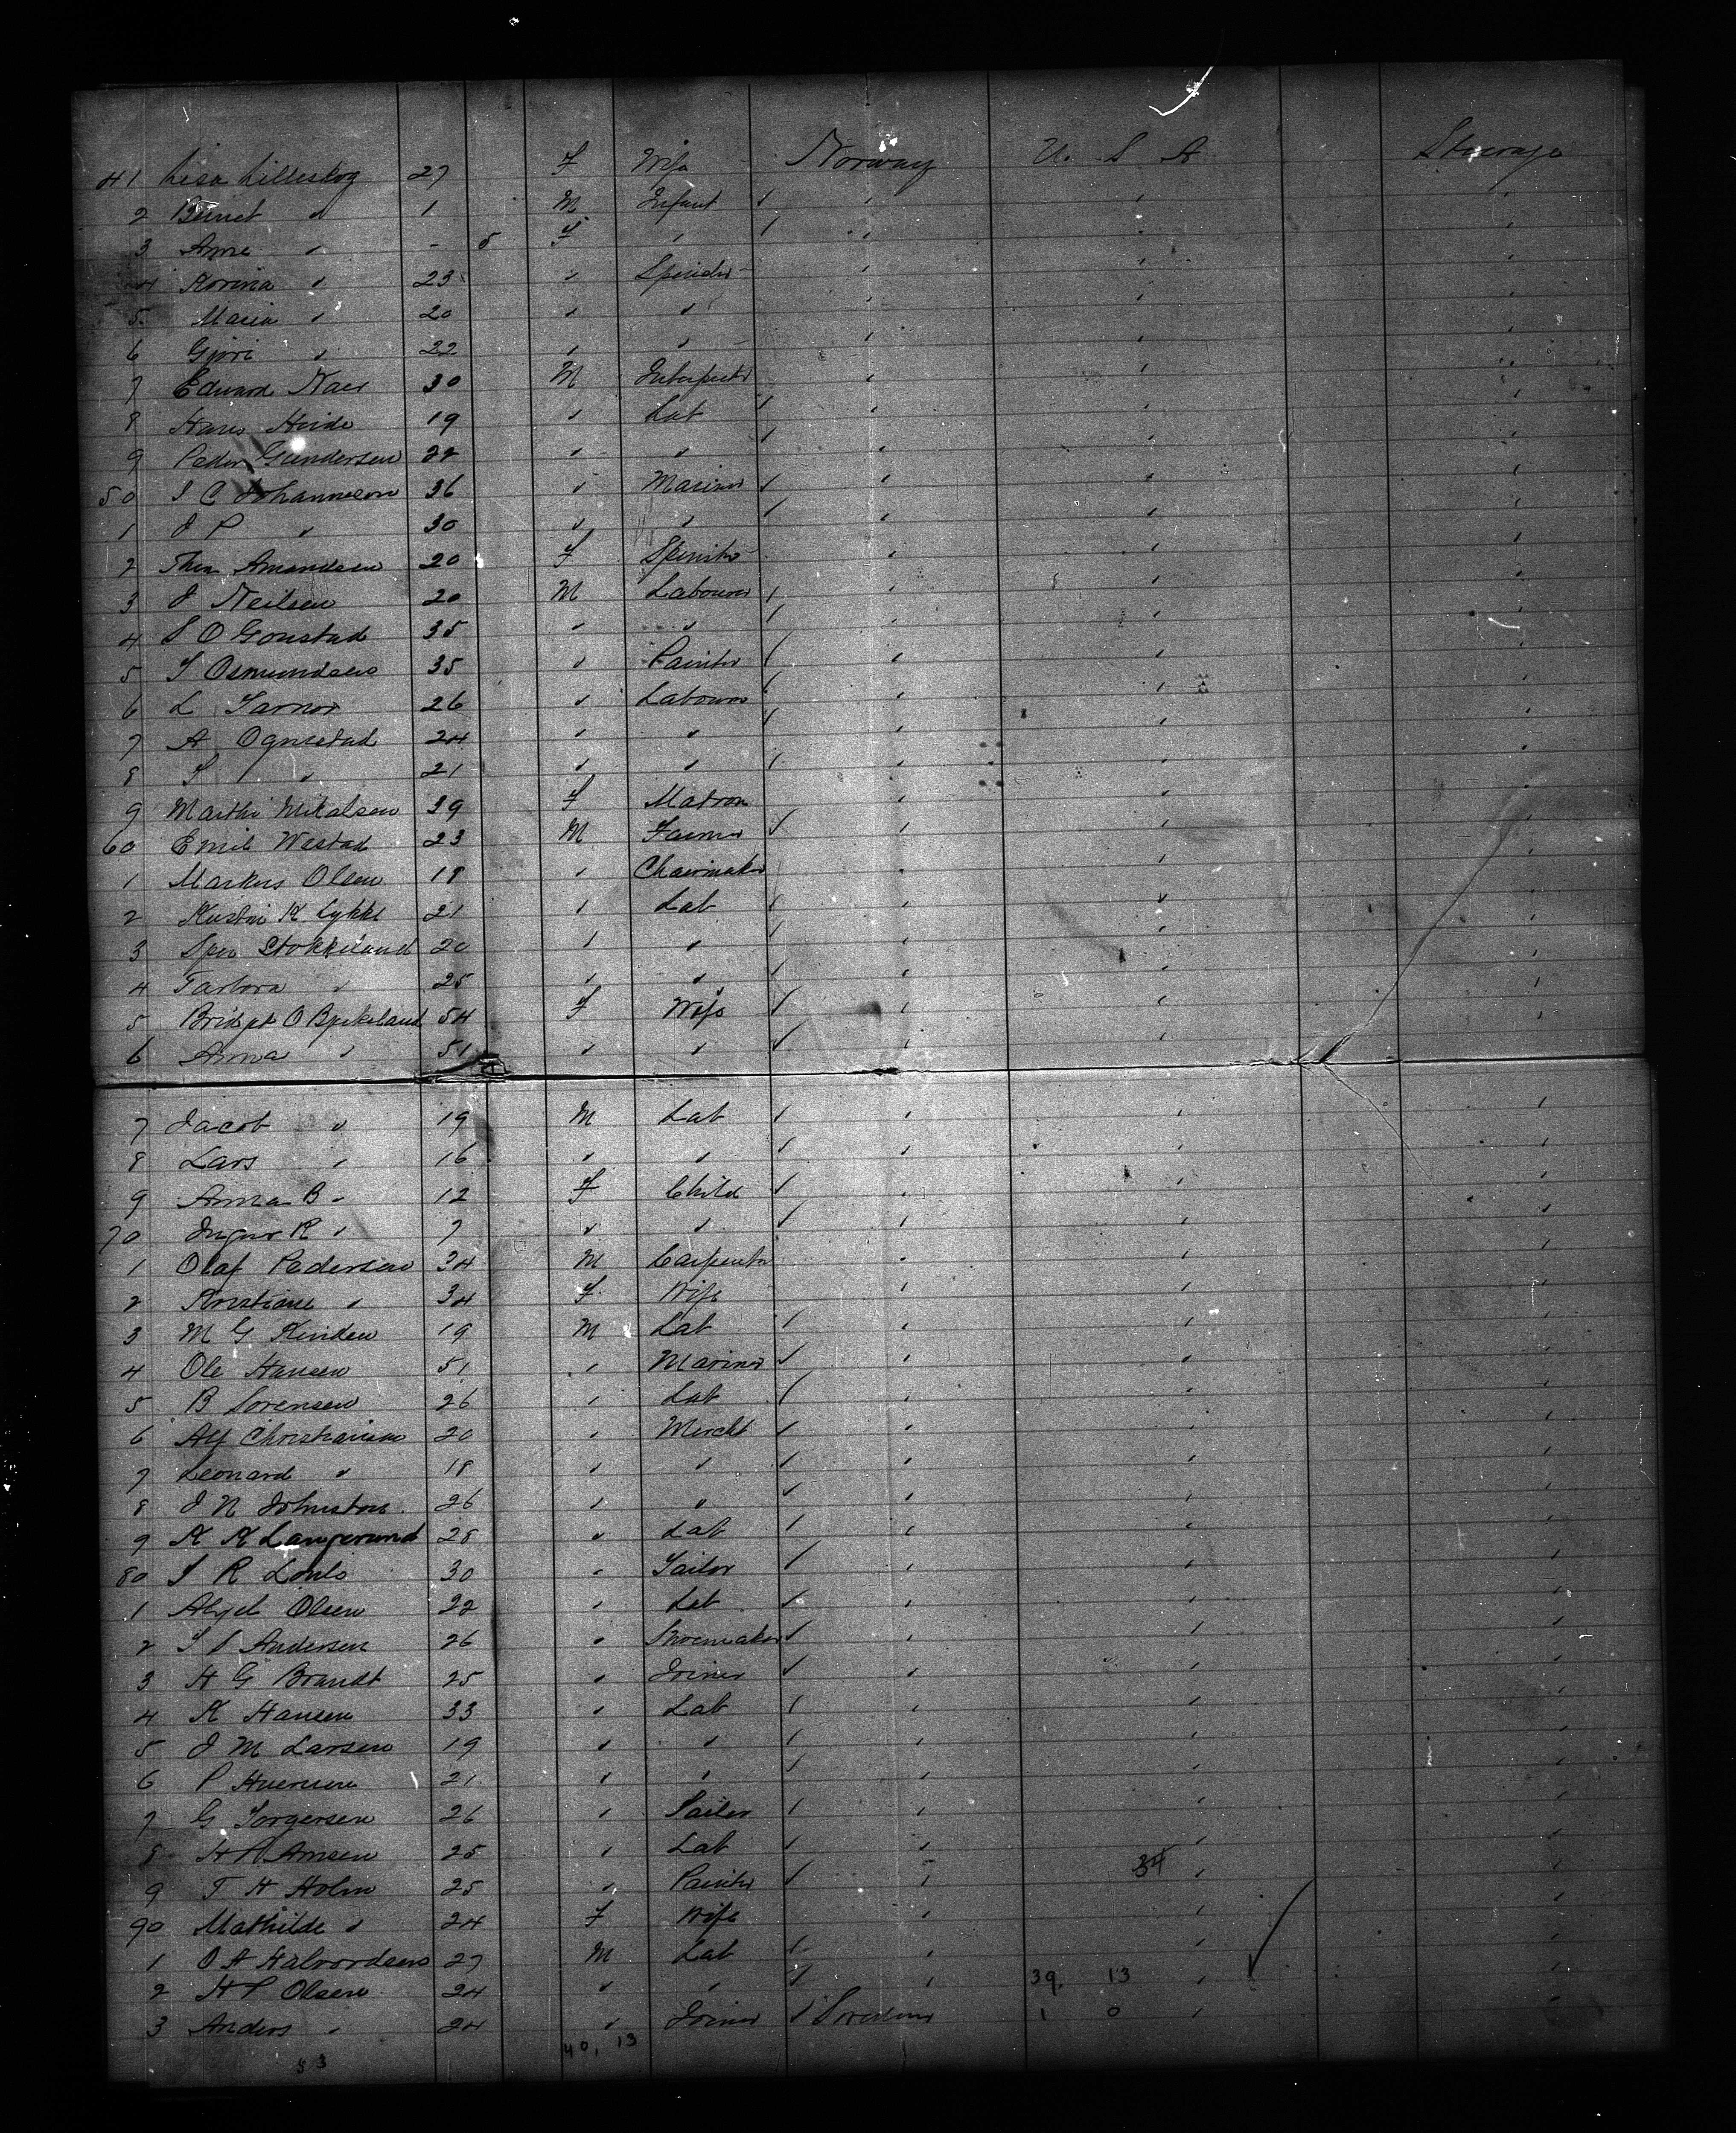 41 Lisa Lilleskog 27 F Wife Norway U. S. A Steerage
2 Bernet " 1 M Infant " " "
3 Anne " - 5 F " " " "
4 Korina " 23 " Spinster " " "
5 Maria " 20 " " " " "
6 Gjori " 22 " " " " "
7 Edward Naes 30 M Interpreter " " "
8 Hans Heide 19 " Lab " " "
9 Peder Gundersen 22 " " " " "
50 I C Johannesen 36 " Mariner " " "
1 J P " 30 " " " " "
2 Thea Amandsen 20 F Spinster " " "
3 J Neilsen 20 M Labourer " " "
4 S O Gonstad 35 " " " " "
5 T Osmundsen 35 " Painter " " "
6 L Tarnor 26 " Labourer " " "
7 A Ognsetad 24 " " " " "
8 S " 21 " " " " "
9 Marthe Mikalsen 39 F Matron " " "
60 Emil Westad 23 M Farmer " " "
1 Markus Olsen 18 " Chairmaker " " "
2 K Lykke 21 " Lab " " "
3 Stokkeland 20 " " " " "
4 " 25 " " " " "
5 Bridget O Bjekeland 54 F Wife " " "
6 Anna " 51 " " " " "
7 Jacob " 19 M Lab " " "
8 Lars " 16 " " " " "
9 Anna B " 12 F Child " " "
70 Inger R " 7 " " " " "
1 Olaf Pedersen 34 M Carpenter " " "
2 Kristiane " 34 F Wife " " "
3 M G Kinden 19 M Lab " " "
4 Ole Hansen 51 " Mariner " " "
5 B Sorensen 26 " Lab " " "
6 Alf Christiansen 20 " Mercht " " "
7 Leonard " 18 " " " " "
8 J N Johnston 26 " " " " "
9 K K Langerund 28 " Lab " " "
80 S R 30 " Tailor " " "
1 Olsen 22 " Lab " " "
2 T S Andersen 26 " Shoemaker " " "
3 H G Brandt 25 " Joiner " " "
4 K Hansen 33 " Lab " " "
5 J M Larsen 19 " " " " "
6 P 21 " " " " "
7 G Torgersen 26 " Sailor " " "
8 H P Amsen 25 " Lab " " "
9 T H Holm 25 " Painter " 34 " "
90 Mathilde " 24 F Wife " " "
1 O A Halvordsen 27 M Lab " " "
2 H P Olsen 24 " " " 39, 13 " "
3 Anders " 24 " Joiner Sweden 1 0 " "
53 40, 13